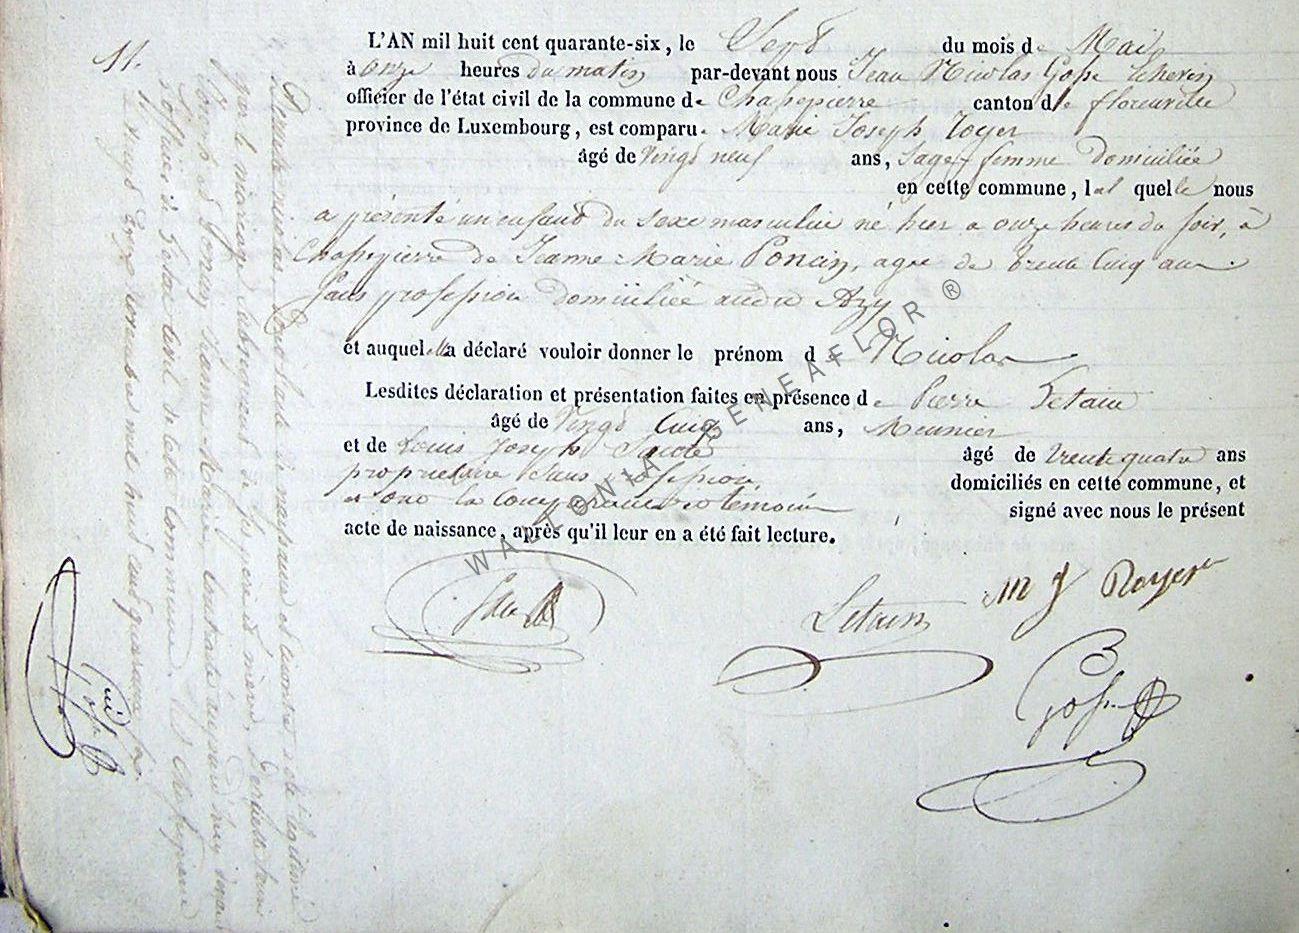 11.
L'AN mil huit cent quarante-six, le Sept du mois de Mai
à onze heures du matin par-devant nous Jean Nicolas Gosse Echevin
officier de l'état civil de la commune de Chassepierre canton de florenville
province de Luxembourg, est comparue Marie Joseph Royer
âgé de vingt neuf ans, Sage-femme domiciliée
en cette commune, laquelle nous
a présenté un enfant du sexe masculin né hier a onze heures du soir, à
Chassepierre de Jeanne-Marie Poncin, agée de trente Cinq ans
Sans profession domiciliée audit Azy
et auquel elle a déclaré vouloir donner le prénom de Nicolas
Lesdites déclaration et présentation faites en présence de Pierre Letain
âgé de Vingt Cinq ans, Meunier
et de Louis Joseph âgé de trente quatre ans
propriétaire Sans profession, domiciliés en cette commune, et
et ont la Comparante et temoins signé avec nous le présent
acte de naissance, après qu'il leur en a été fait lecture.
Letain M J Royer
Gosse
par le mariage Subséquent de ses père et mère,
Poncin Jeanne-Marie, contracté
l'officier de l'état civil de cette commune. à Chassepierre
le vingt mil huit cent quarante
Gosse
WALLONIA GENEAFLOR ®